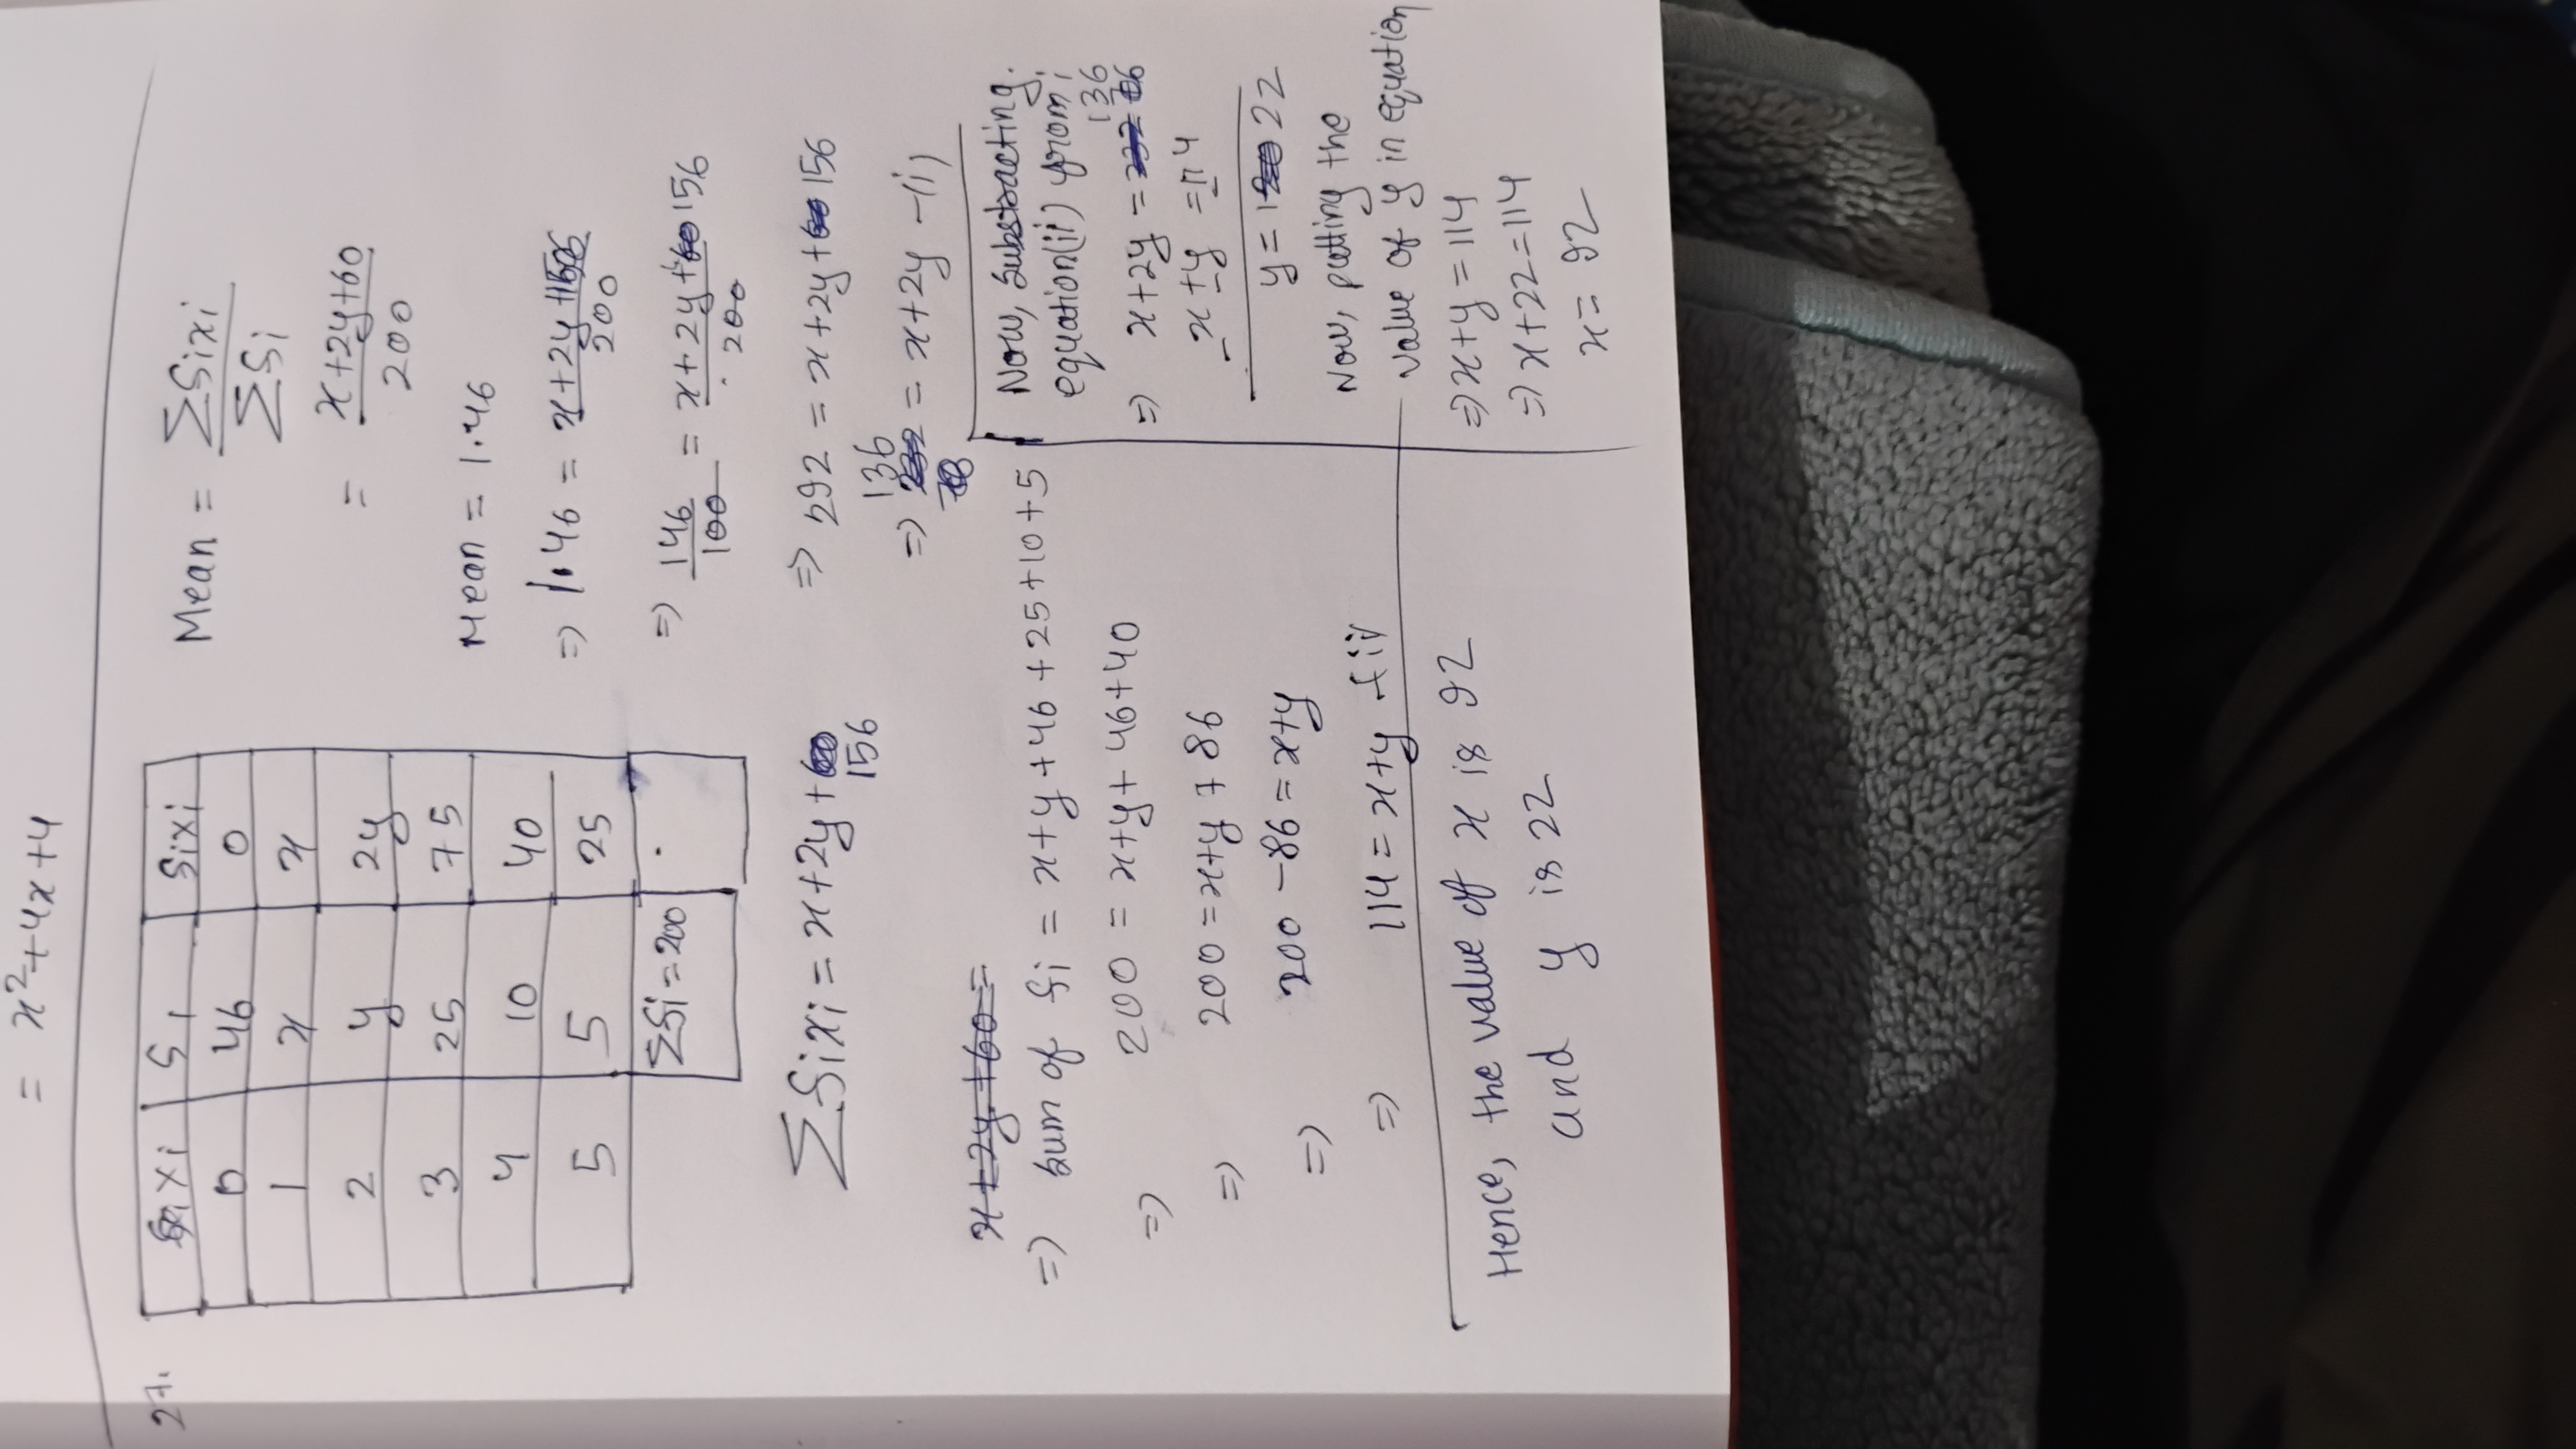 = x²+4x+4
27.
xi | fi | fixi
0 | 46 | 0
1 | x | x
2 | y | 2y
3 | 25 | 75
4 | 10 | 40
5 | 5 | 25
Σfi=200 | .
Σfixi = x+2y+
156
x+2y+60=
=) sum of fi = x+y+46+25+10+5
=) 200 = x+y+46+40
=) 200 = x+y+86
=) 200-86 = x+y
=) 114 = x+y -(ii)
Mean = Σfixi
Σfi
= x+2y+60
200
Mean = 1.46
=) 1.46 = x+2y+156
200
=) 146 = x+2y+60 156
100 200
=) 292 = x+2y+60 156
136
=) 232 = x+2y -(i)
Now, Substracting.
equation(ii) from i
136
=) x+2y = 232
-x+y = 114
y = 22
Now, putting the
value of y in equation
=) x+y = 114
=) x+22 = 114
x = 92
Hence, the value of x is 92
and y is 22